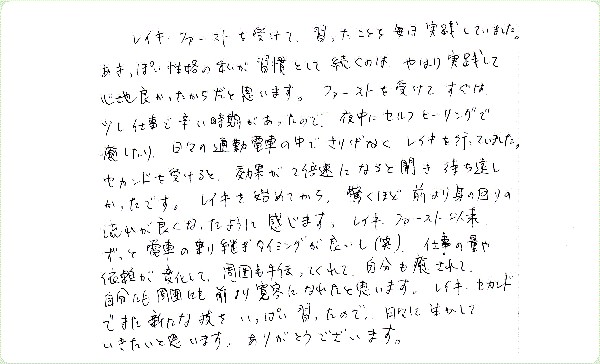 レイキ・ファーストを受けて、習ったことを毎日実践していました。
あきっぽい性格の私が習慣として続くのは やはり実践して
心地良かったからだと思います。 ファーストを受けてすぐは、
少し仕事で辛い時期があったので、夜中にセルフヒーリングで
癒したり、日々の通勤電車の中でさりげなく レイキを行っていました。
セカンドを受けると、効果が2倍速になると聞き待ち遠し
かったです。 レイキを始めてから、驚くほど前より身の回りの
流れが良くなったように感じます。 レイキ・ファースト以来
ずっと電車の乗り継ぎタイミングが良いし(笑)、仕事の量や
依頼が変化して、周囲も手伝ってくれて、自分も癒されて、
自分にも周囲にも前より寛容になれたと思います。 レイキ・セカンド
でまた新たな技をいっぱい習ったので、日々に生かして
いきたいと思います。ありがとうございます。